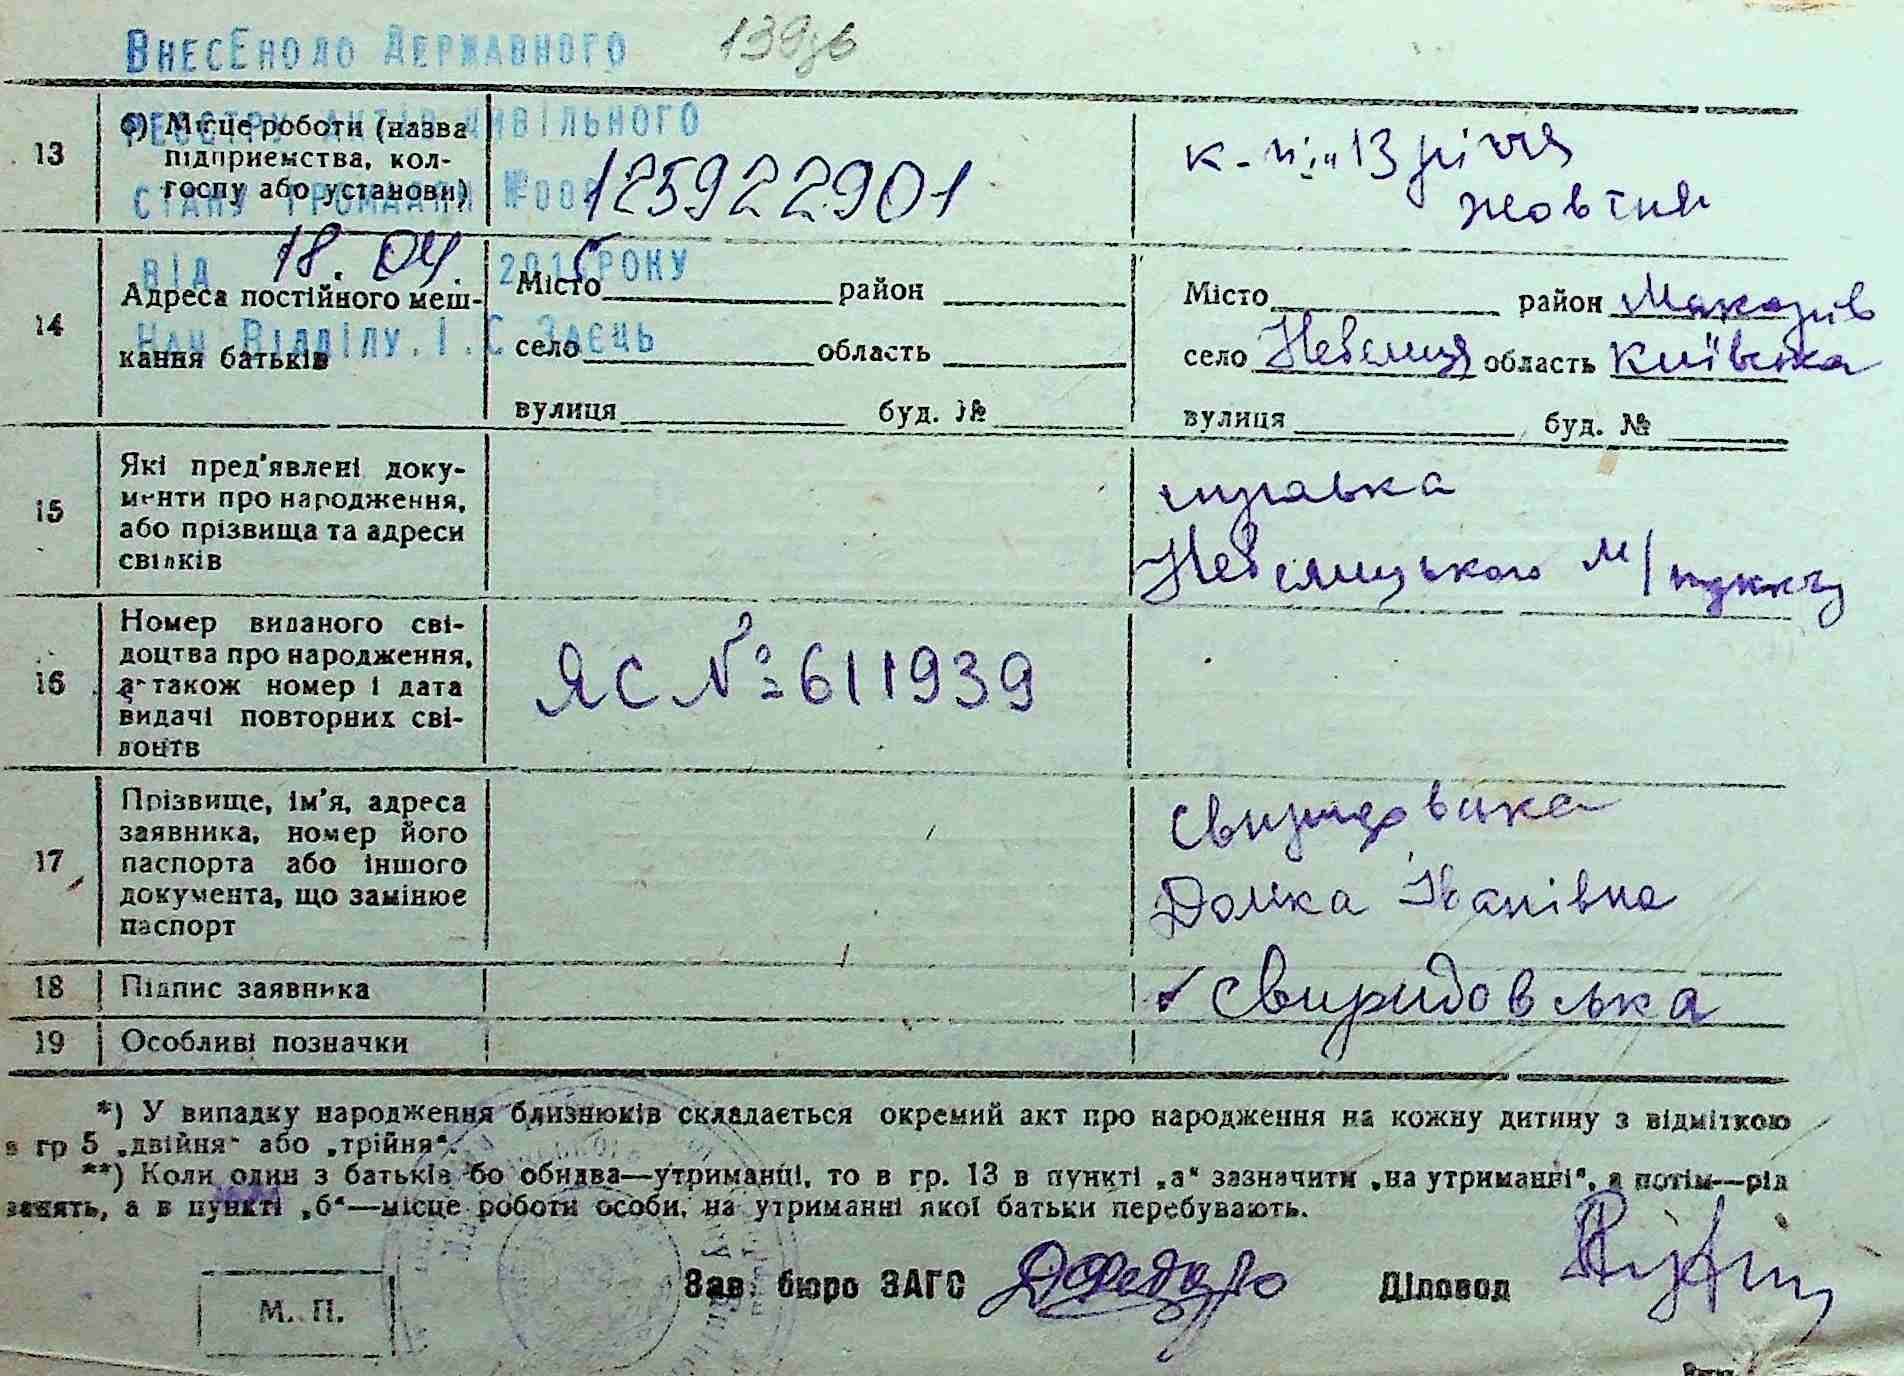 139зв
Внесено до Державного
реєстру актів цивільного
стану громадян №00 125922901
від 18.04. 2015 року
Нач Відділу. І.С Заєць
13 б) Місце роботи (назва підприємства, колгоспу або установи)
к-п "13 річчя
жовтня
14 Адреса постійного меш-
кання батьків
Місто район
село область
вулиця буд. №
Місто район Макарів
село Небелиця область Київська
вулиця буд. №
15 Які пред'явлені доку-
менти про народження,
або прізвища та адреси
свідків
справка
Небелицького м/пункту
16 Номер виданого сві-
доцтва про народження,
а також номер і дата
видачі повторних сві-
доцтв
ЯС № 611939
17 Прізвище, ім'я, адреса
заявника, номер його
паспорта або іншого
документа, що замінює
паспорт
Свиридовська
Домка Іванівна
18 Підпис заявника
Свиридовська
19 Особливі позначки
*) У випадку народження близнюків складається окремий акт про народження на кожну дитину з відміткою
в гр 5 „двійня" або „трійня".
**) Коли один з батьків бо обидва—утриманці, то в гр. 13 в пункті „а" зазначити „на утриманні", а потім—рід
занять, а в пункті „б"—місце роботи особи, на утриманні якої батьки перебувають.
М. П.
Зав. бюро ЗАГС
Діловод